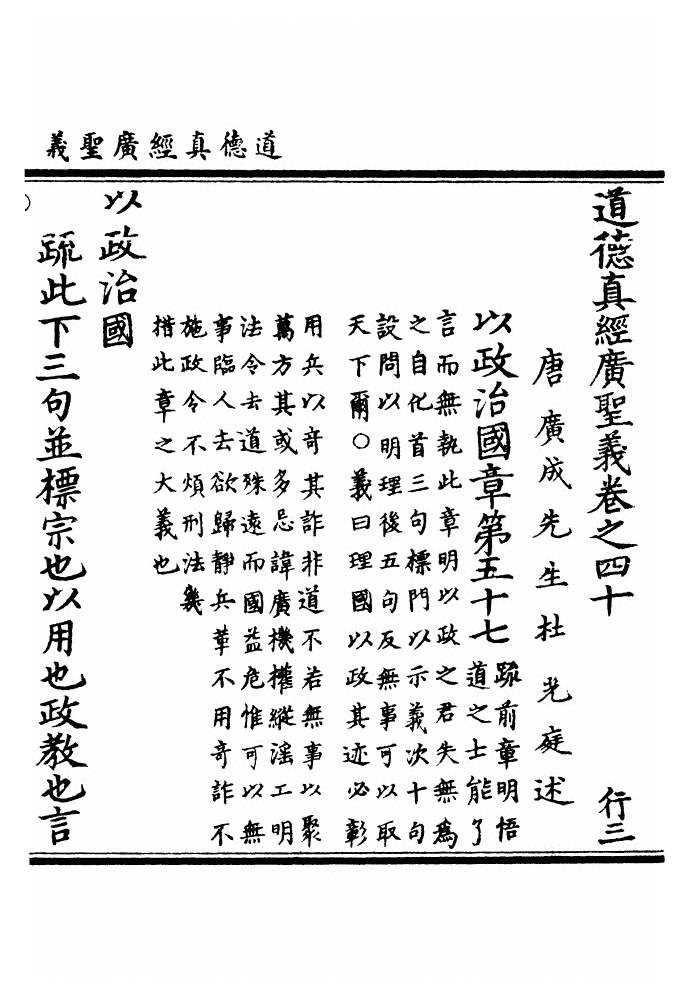 道德真經廣聖義
道德真經廣聖義卷之四十
行三
唐廣成先生杜光庭述
以政治國章第五十七
疏前章明悟
道之士能了
言而無執此章明以政之君失無為
之自化首三句標門以示義次十句
設問以明理後五句反無事可以取
天下爾○義曰理國以政其迹必彰
用兵以奇其詐非道不若無事以聚
萬方其或多忌諱廣機權縱滛工明
法令去道殊遠而國益危惟可以無
事臨人去欲歸靜兵革不用奇詐不
施政令不煩刑法幾
措此章之大義也
以政治國
疏此下三句並標宗也以用也政教也言